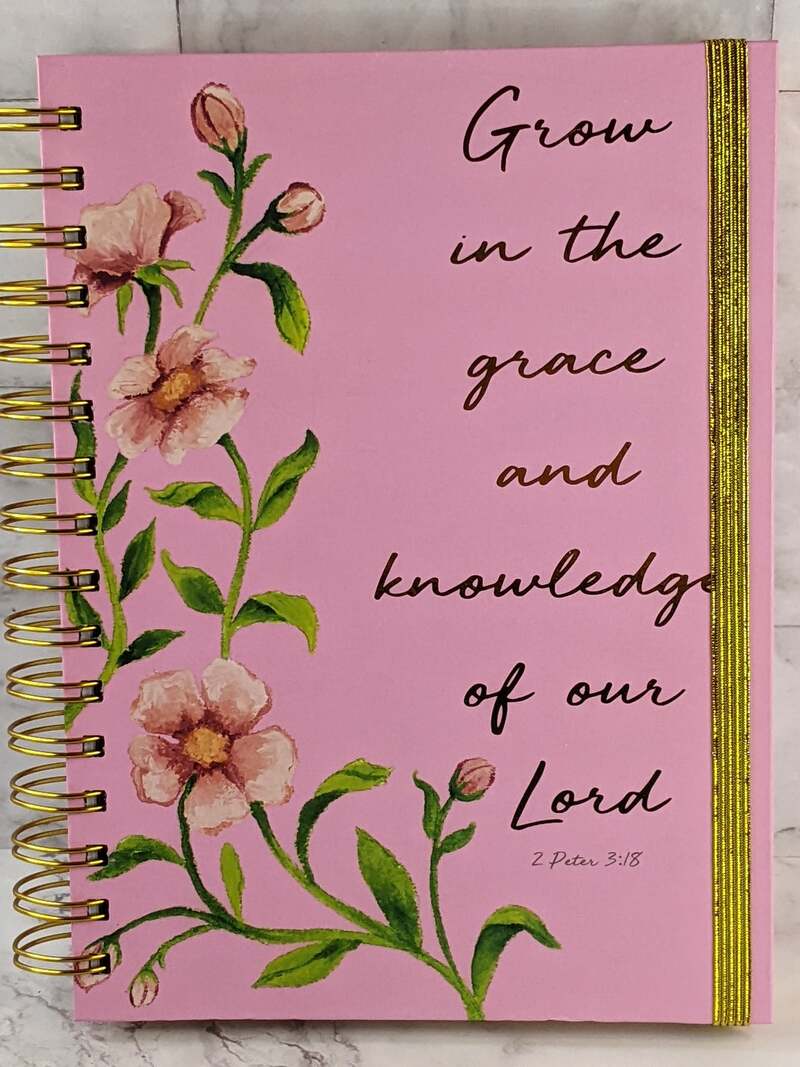 Grow
in the
grace
and
knowledge
of our
Lord
2 Peter 3:18